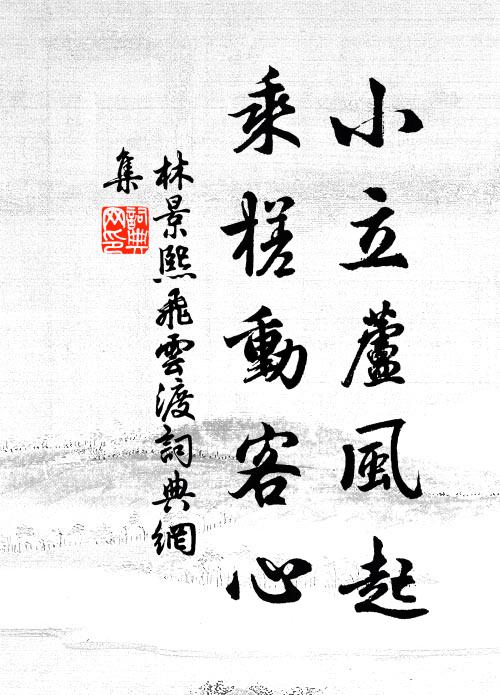 小立蘆風起
乘槎動客心
林景熙飛雲渡詞典網
集
詞典網印